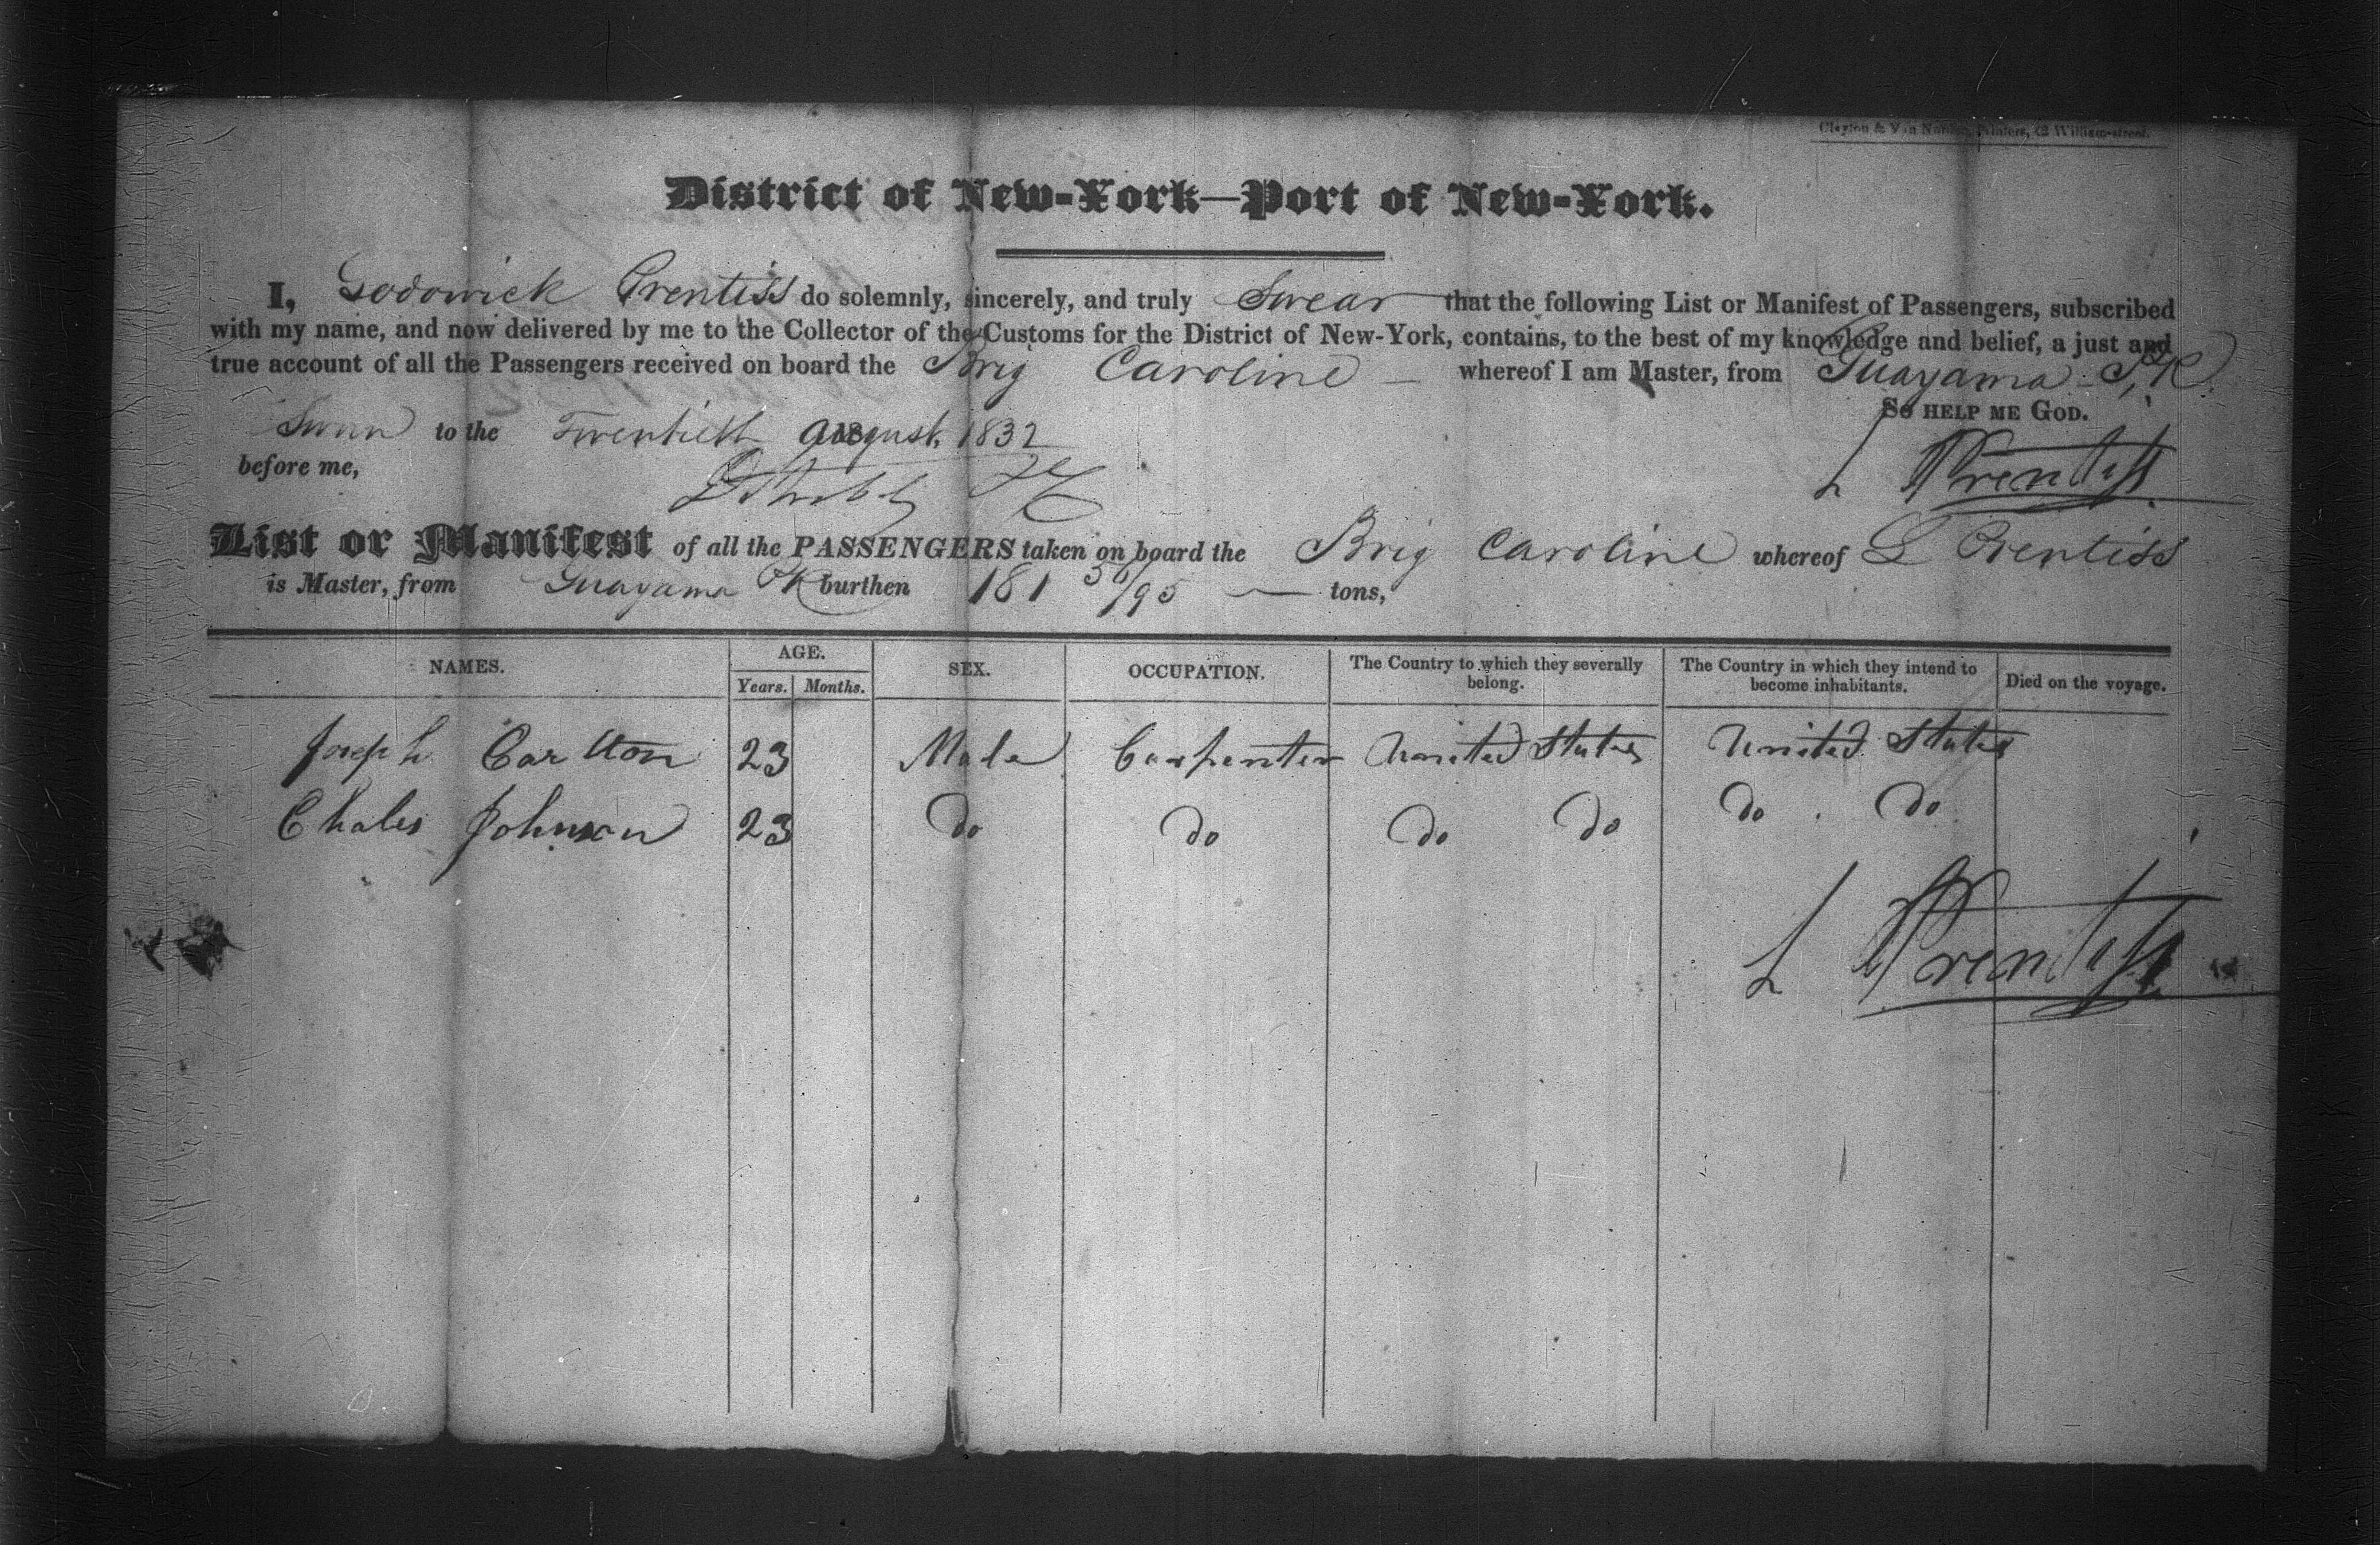 Clayton & Van Norden, Printers, 42 William-street.
District of New-York—Port of New-York.
I, Lodowick Prentiss do solemnly, sincerely, and truly Swear that the following List or Manifest of Passengers, subscribed
with my name, and now delivered by me to the Collector of the Customs for the District of New-York, contains, to the best of my knowledge and belief, a just and
true account of all the Passengers received on board the Brig Caroline — whereof I am Master, from Guayama P.R.
So help me God.
Sworn to the Twentieth August, 1832
before me,
L Prentiss
List or Manifest of all the PASSENGERS taken on board the Brig Caroline whereof L Prentiss
is Master, from Guayama PR burthen 181 /95 — tons,
NAMES. AGE. SEX. OCCUPATION. The Country to which they severally belong. The Country in which they intend to become inhabitants. Died on the voyage.
Years. Months.
Joseph Carlton 23 Male Carpenter United States United States
Chales Johnson 23 do do do do do do
L Prentiss